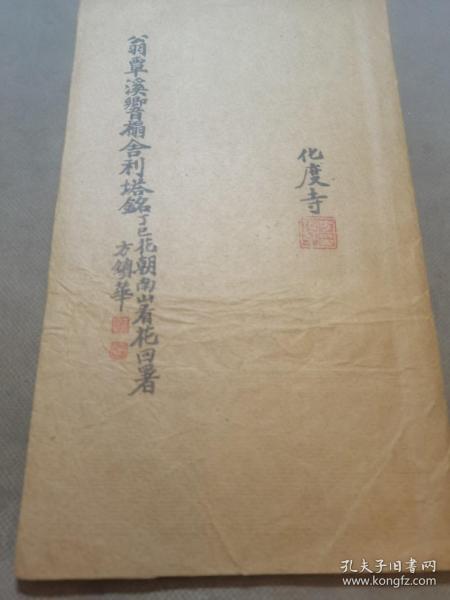 化度寺
翁覃溪響搨舍利塔銘
丁巳花朝南山看花回署
方鎮華
孔夫子旧书网
www.kongfz.com